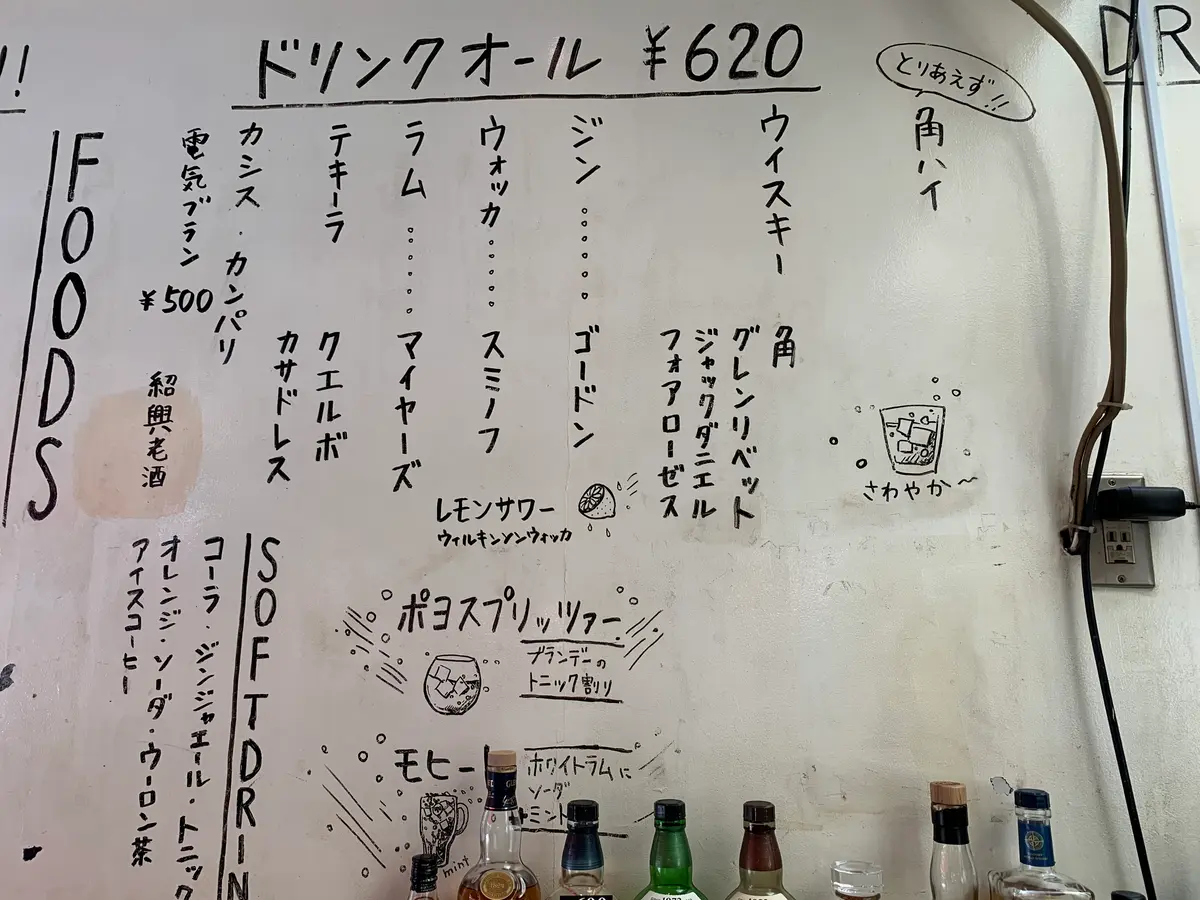 ドリンクオール ¥620
とりあえず!!
角ハイ
さわやか〜
ウイスキー 角
グレンリベット
ジャックダニエル
フォアローゼス
ジン…… ゴードン
ウォッカ…… スミノフ
ラム…… マイヤーズ
テキーラ クエルボ
カサドレス
カシス・カンパリ
電気ブラン ¥500
紹興老酒
レモンサワー
ウィルキンソンウォッカ
ポヨスプリッツァー
ブランデーの
トニック割り
モヒー
ホワイトラムに
ソーダ
ミント
mint
SOFT DRIN
コーラ・ジンジャエール・トニック
オレンジ・ソーダ・ウーロン茶
アイスコーヒー
FOODS
!!
DR